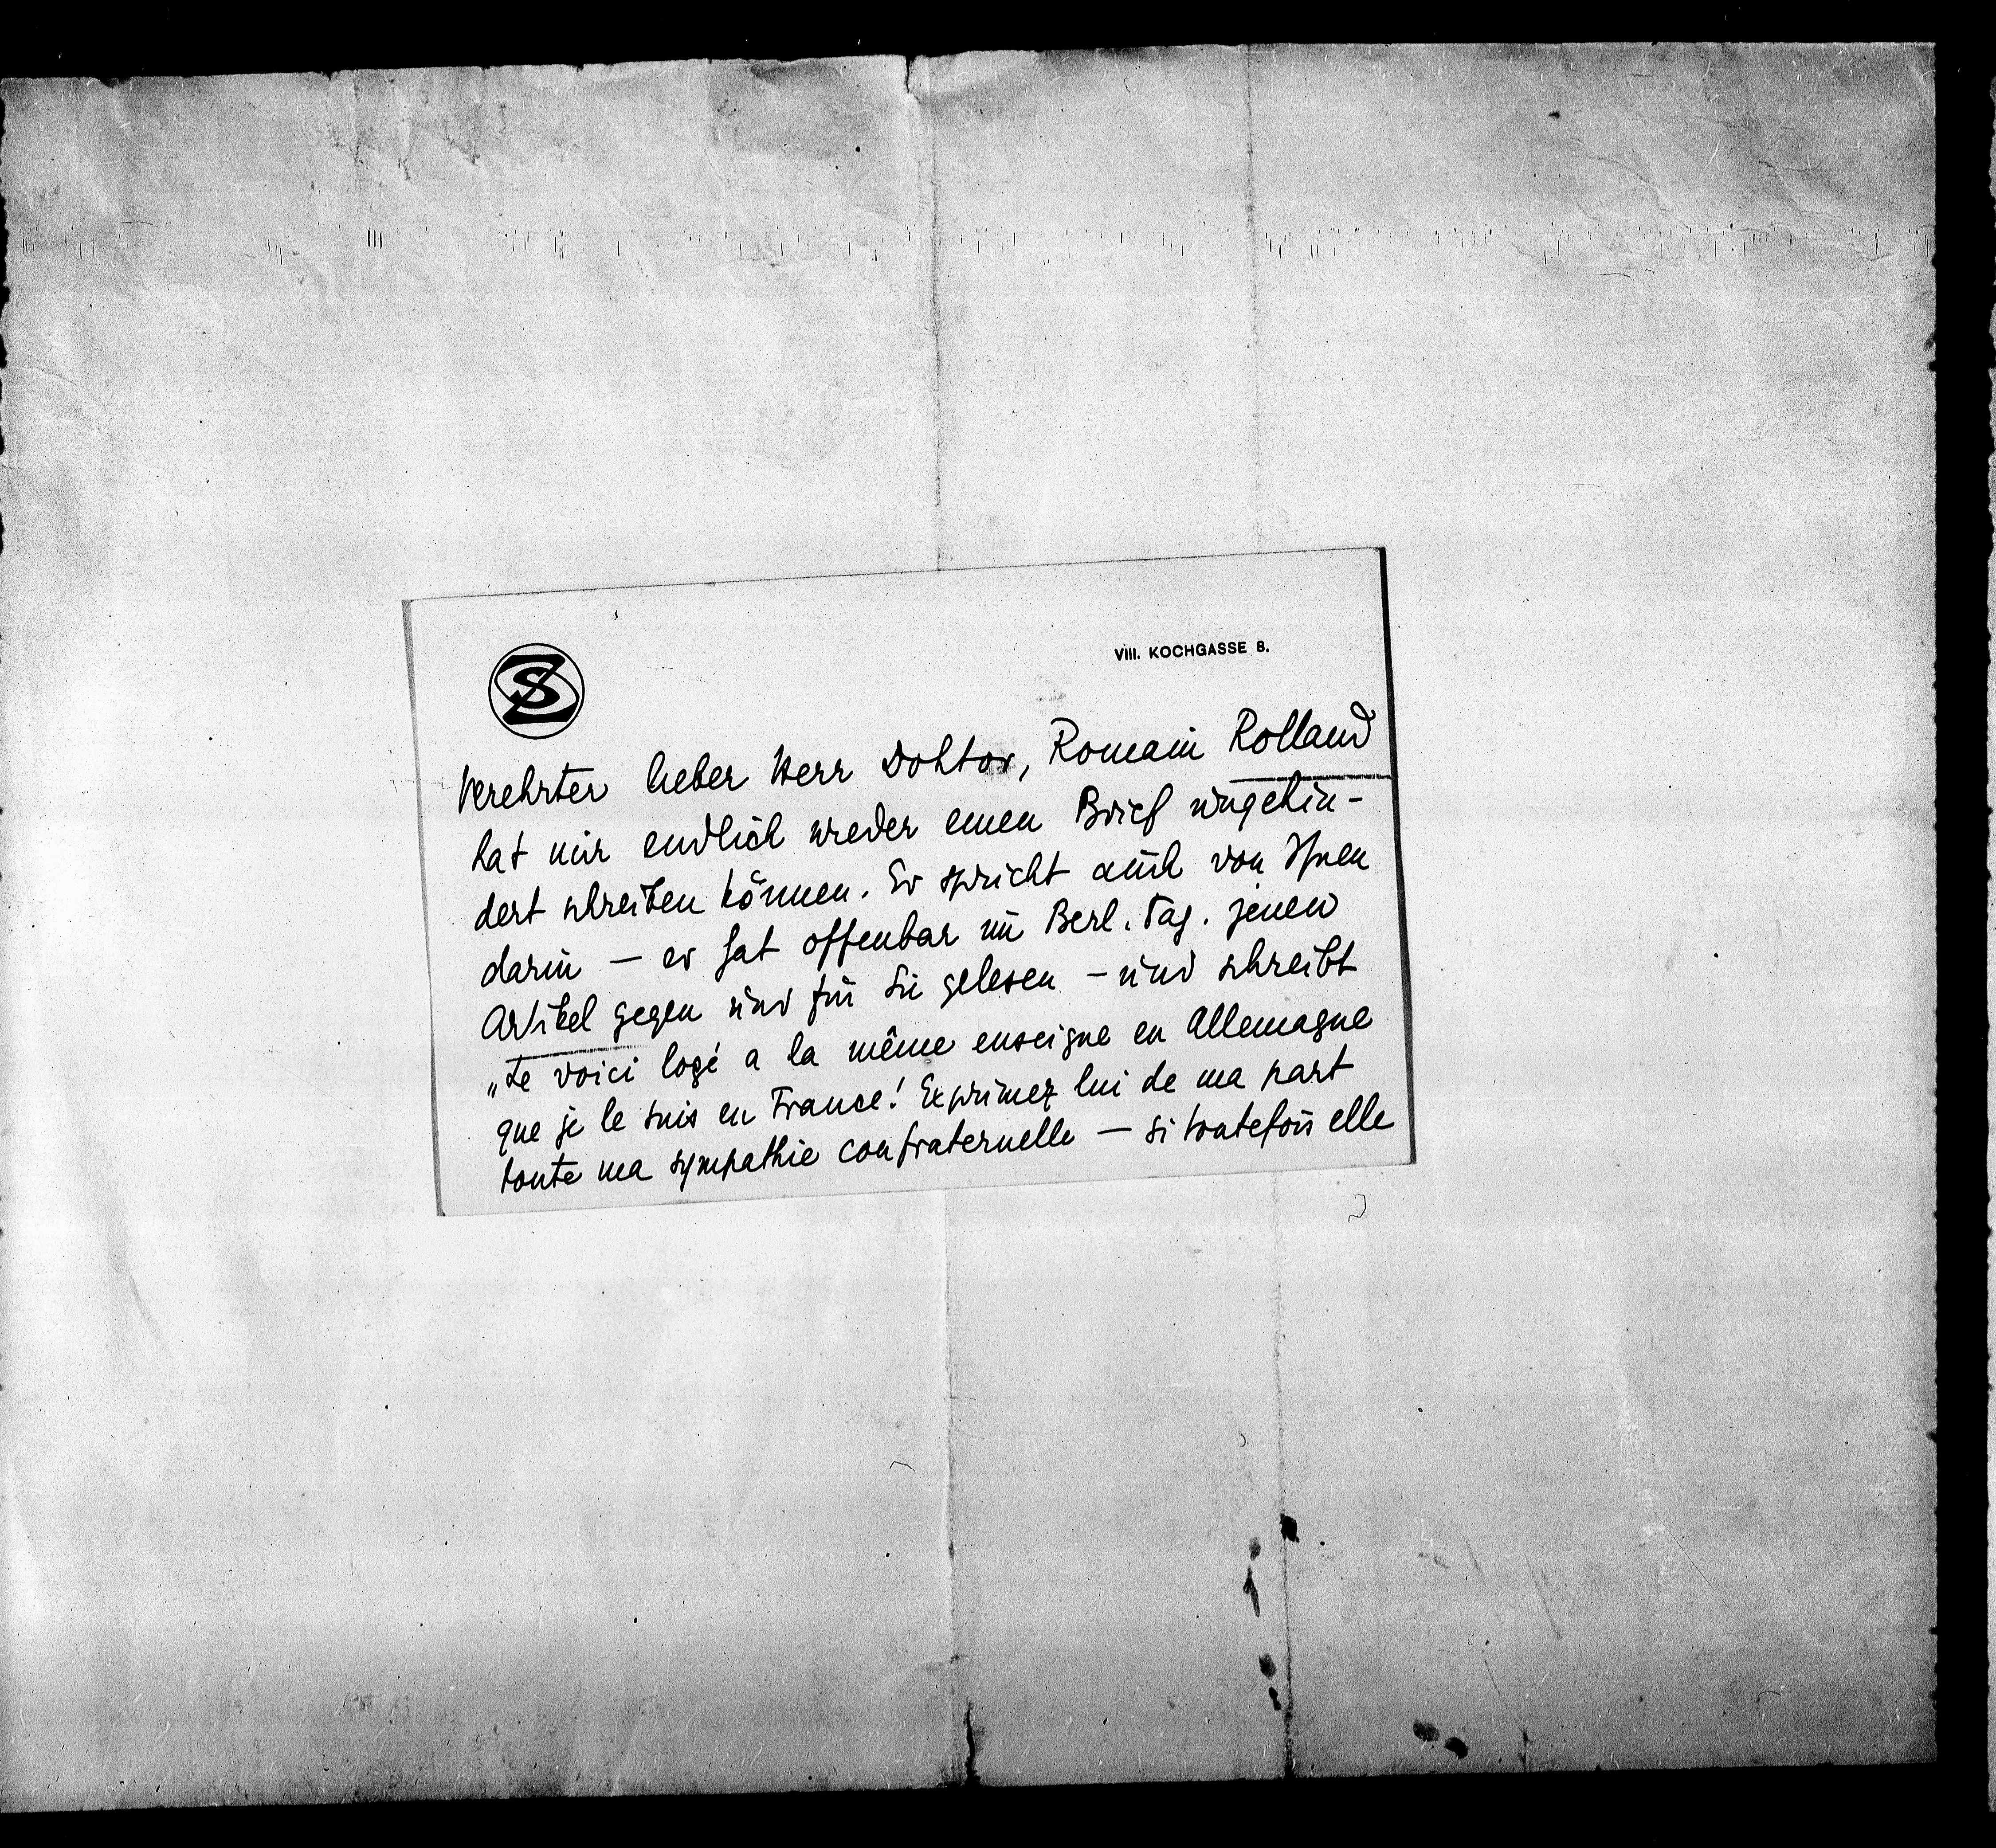 SZ
VIII. KOCHGASSE 8.
Verehrter lieber Herr Doktor, Romain Rolland
hat mir endlich wieder einen Brief ungehin-
dert schreiben können. Er spricht auch von Ihnen
darin — er hat offenbar im Berl. Tag. jenen
Artikel gegen und für Sie gelesen — und schreibt
„Le voici logé a la même enseigne en Allemagne
que je le suis en France! Exprimez lui de ma part
toute ma sympathie confraternelle — si toutefois elle